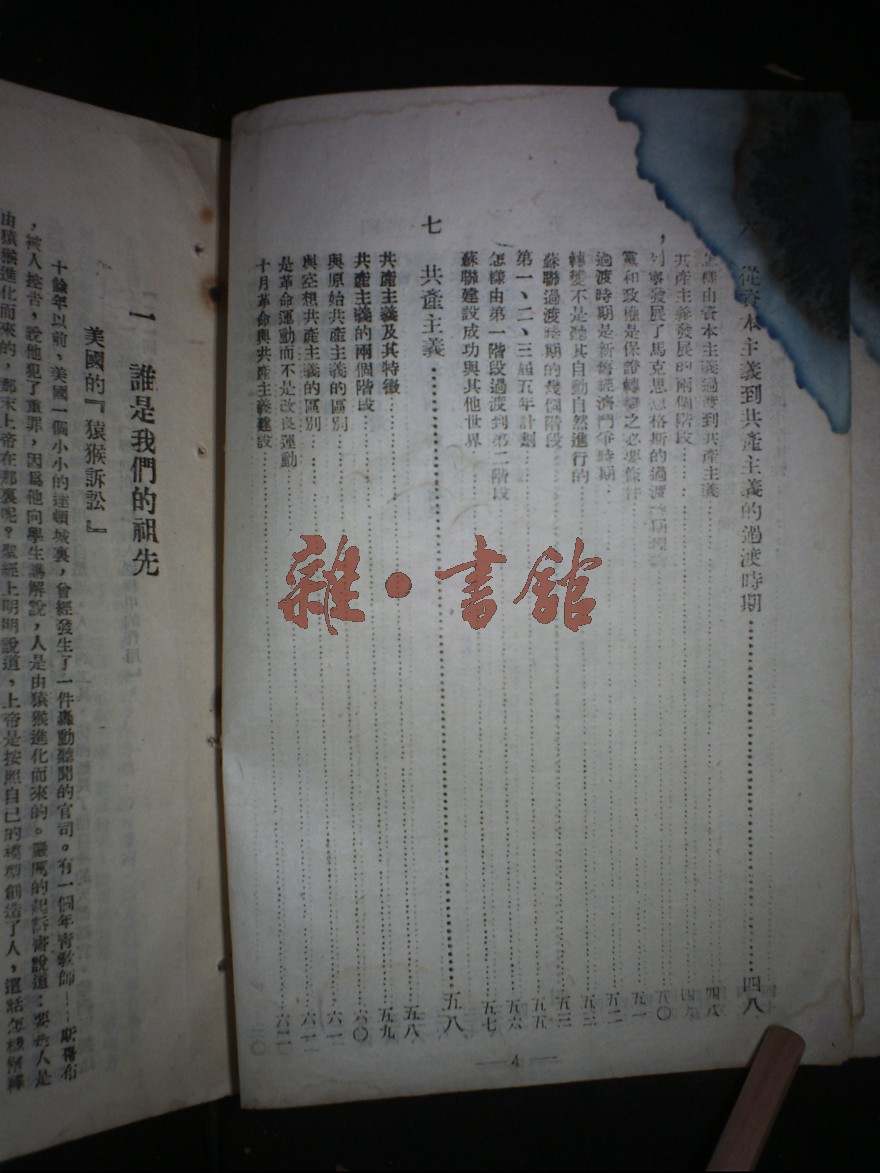 從資本主義到共產主義的過渡時期……四八
怎樣由資本主義過渡到共產主義……四八
共產主義發展的兩個階段……四
列寧發展了馬克思恩格斯的過渡時期……五〇
黨和政權是保證轉變之必要條件……五一
過渡時期是新舊經濟鬥爭時期……五二
轉變不是聽其自動自然進行的……五三
蘇聯過渡時期的幾個階段……五三
第一、二、三屆五年計劃……五五
怎樣由第一階段過渡到第二階段……五六
蘇聯建設成功與其他世界……五七
七 共產主義……五八
共產主義及其特徵……五八
共產主義的兩個階段……五九
與原始共產主義的區別……六〇
與空想共產主義的區別……六一
是革命運動而不是改良運動……六二
十月革命與共產主義建設……六二
— 4 —
雜·書館
一 誰是我們的祖先
美國的『猿猴訴訟』
十餘年以前，美國一個小小的達頓城裏，曾經發生了一件轟動聽聞的官司。有一個年青教師……斯各布
，被人控告，說他犯了重罪，因為他向學生講解說，人是由猿猴進化而來的。嚴厲的起訴書說道：要是人是
由猿猴進化而來的，那末上帝在那裏呢？聖經上明明說道，上帝是按照自己的模型創造了人，這話怎樣解釋